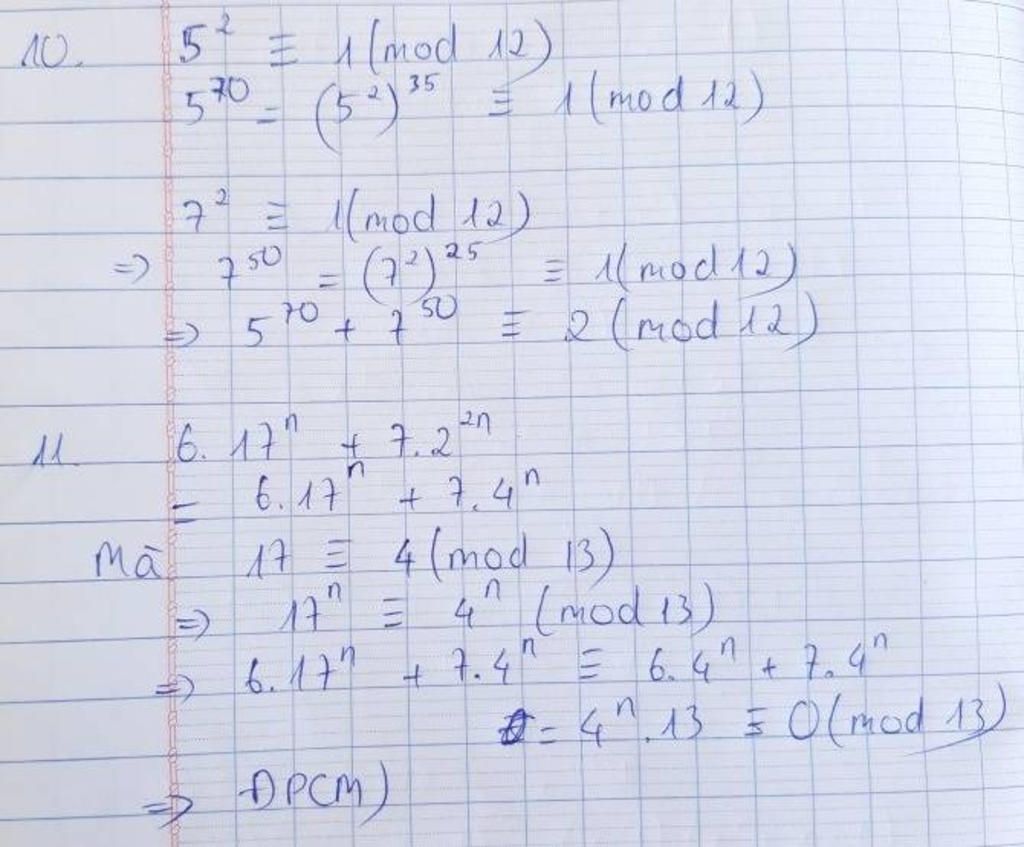 10. 5² ≡ 1 (mod 12)
5⁷⁰ = (5²)³⁵ ≡ 1 (mod 12)
7² ≡ 1 (mod 12)
⇒ 7⁵⁰ = (7²)²⁵ ≡ 1 (mod 12)
⇒ 5⁷⁰ + 7⁵⁰ ≡ 2 (mod 12)
11. 6.17ⁿ + 7.2²ⁿ
= 6.17ⁿ + 7.4ⁿ
Mà 17 ≡ 4 (mod 13)
⇒ 17ⁿ ≡ 4ⁿ (mod 13)
⇒ 6.17ⁿ + 7.4ⁿ ≡ 6.4ⁿ + 7.4ⁿ
= 4ⁿ.13 ≡ 0 (mod 13)
⇒ ĐPCM)